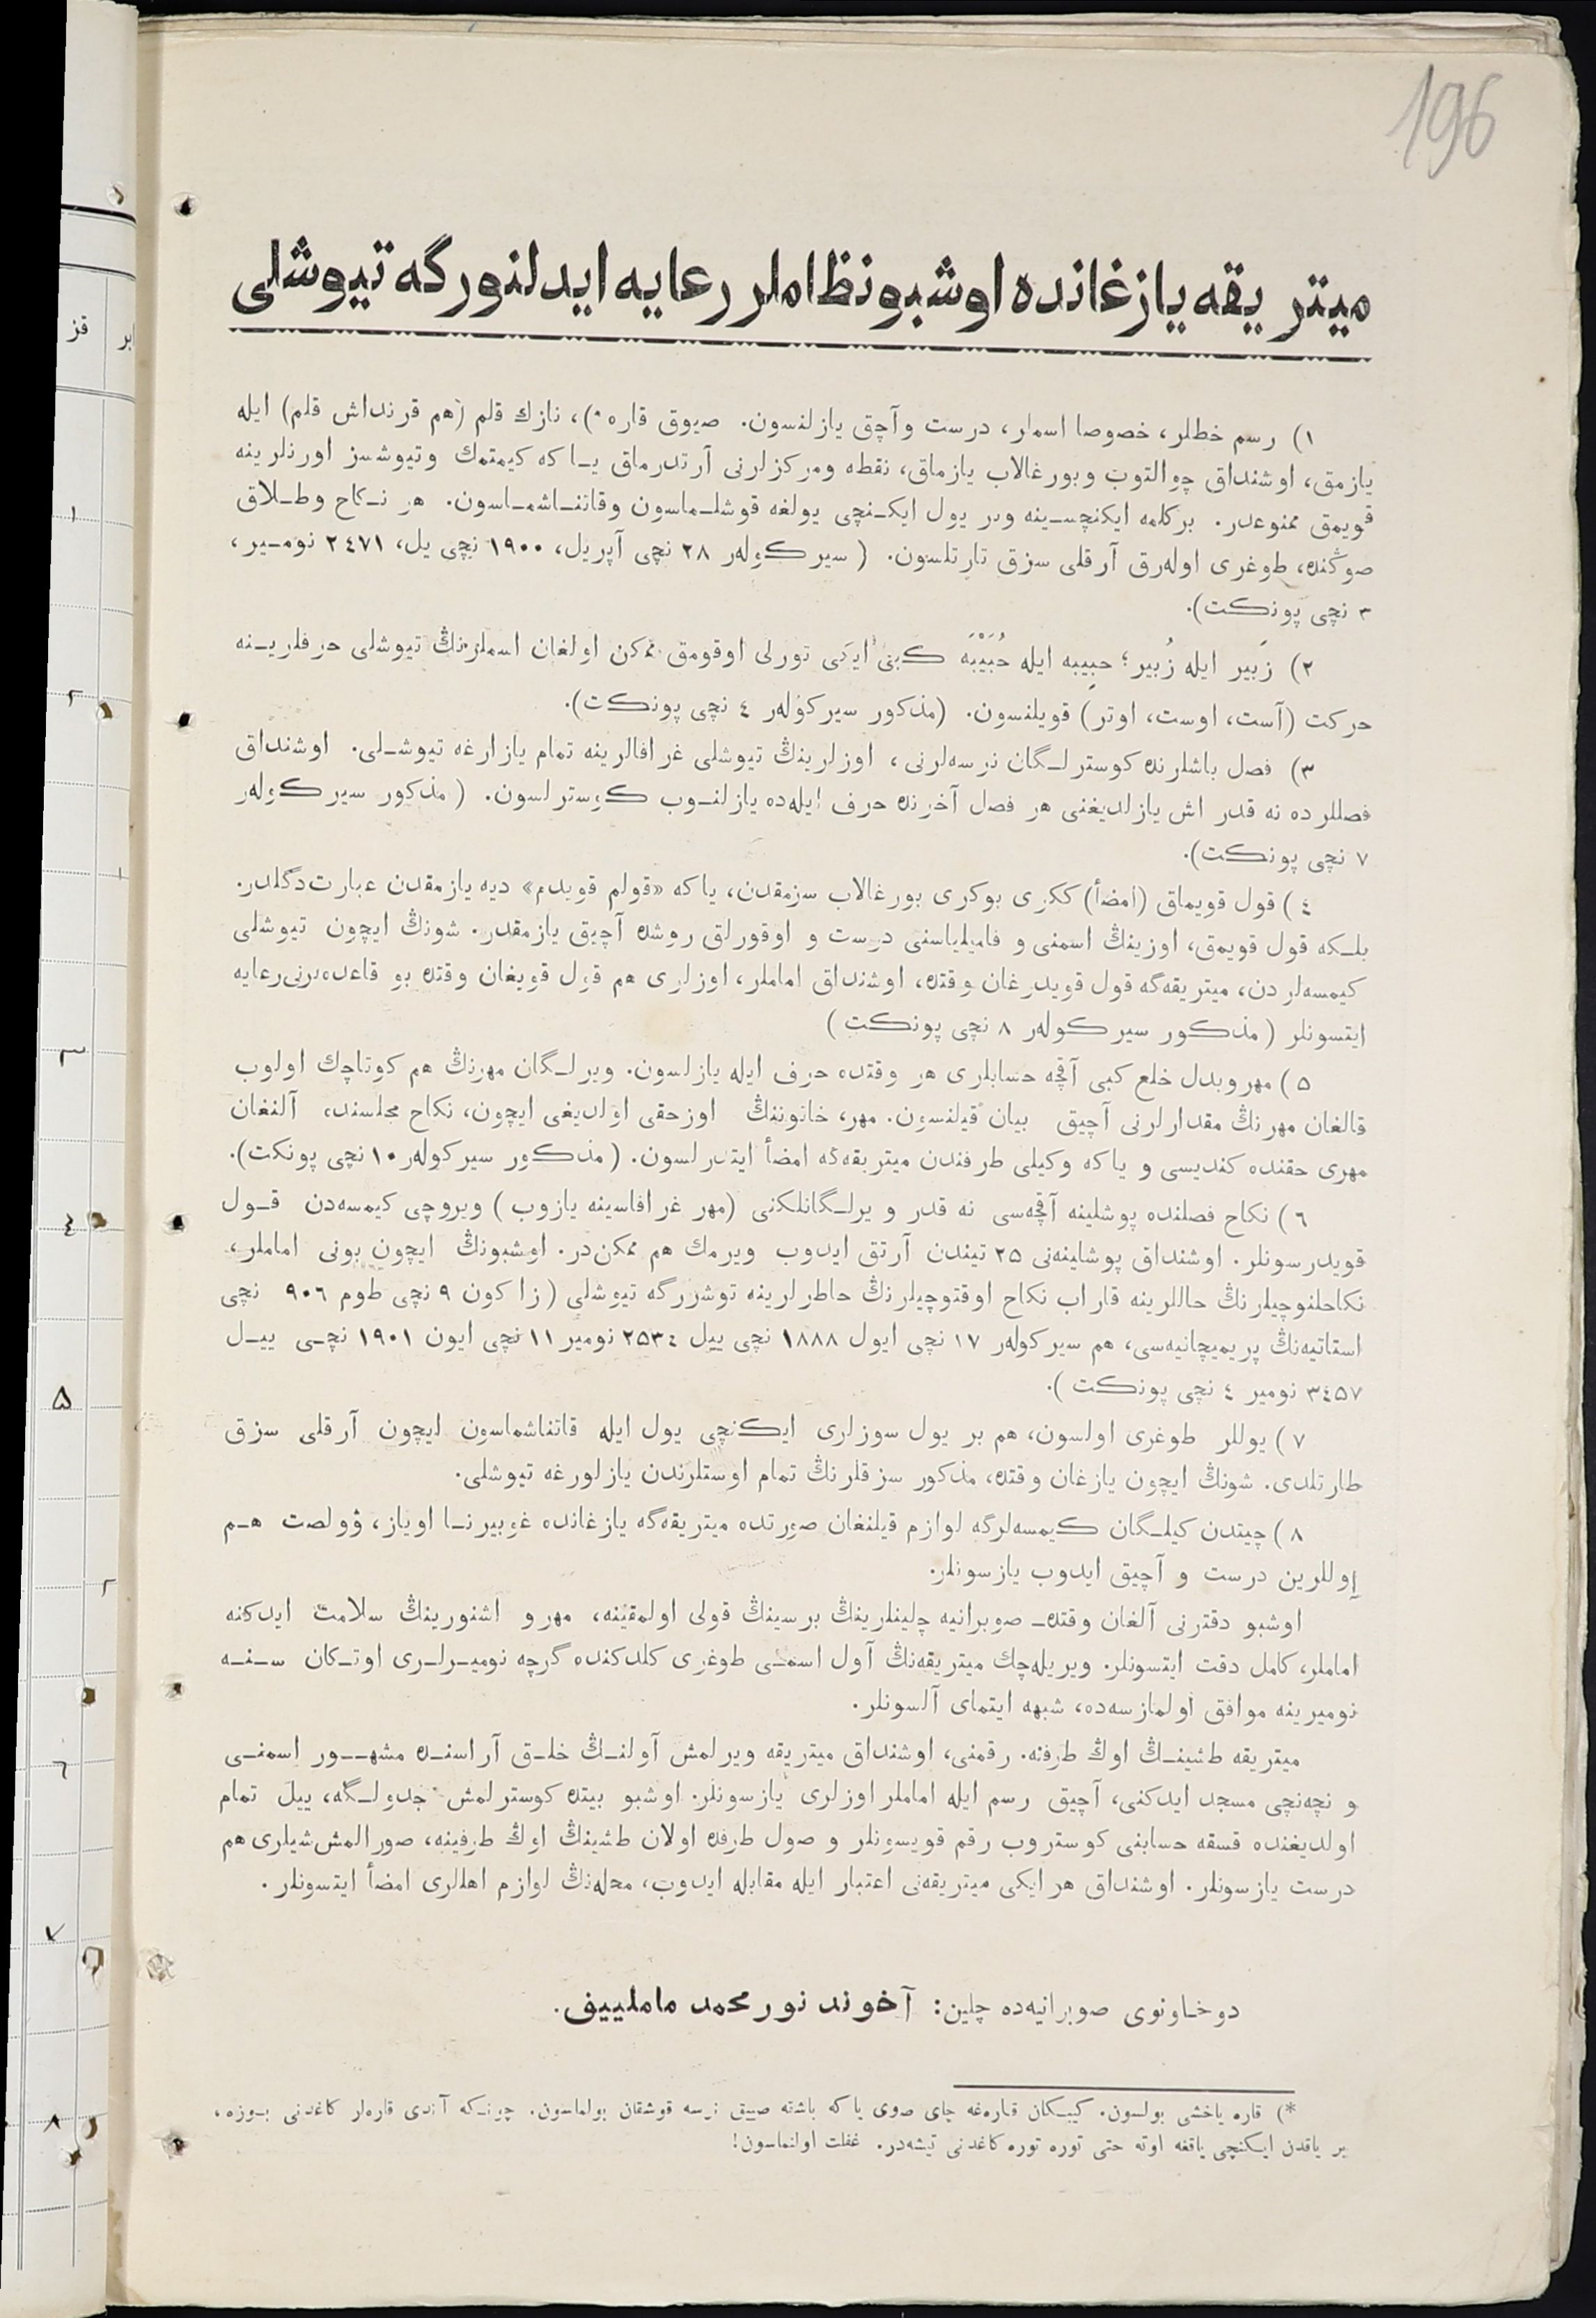 196
میتریقه یازغانده اوشبو نظاملر رعایه ایدلنورگه تیوشلی
۱) رسم خطلر، خصوصا اسملر، درست و آچق یازلنسون. صیوق قاره*)، نازك قلم (هم قرنداش قلم) ایله
یازمق، اوشنداق چوالتوب وبورغالاب یازماق، نقطه ومرکزلرنی آرتدرماق یـا که کیمتمك وتیوشسز اورنلرینه
قویمق ممنوعدر. برکلمه ایکنچسـینه وبر یول ایکـنچی یولغه قوشلـماسون وقاتنـاشمـاسون. هر نـکاح وطـلاق
صوڭنده، طوغری اولەرق آرقلی سزق تارتلسون. (سیرکولەر ۲۸ نچی آپریل، ۱۹۰۰ نچی یل، ۲٤۷۱ نومـیر،
۳ نچی پونکت).
۲) زَبیر ایله زُبیر؛ حبِیبه ایله حُبَیْبَه کبی ایکی تورلی اوقومق ممکن اولغان اسملرنڭ تیوشلی حرفلریـنه
حرکت (آست، اوست، اوتر) قویلنسون. (مذکور سیرکولەر ٤ نچی پونکت).
۳) فصل باشلرنده کوسترلـگان نرسەلرنی، اوزلرینڭ تیوشلی غرافالرینه تمام یازارغه تیوشـلی. اوشنداق
فصللرده نه قدر اش یازلدیغنی هر فصل آخرنده حرف ایلەده یازلنـوب کوسترلسون. (مذکور سیرکولەر
۷ نچی پونکت).
٤) قول قویماق (امضأ) ککری بوکری بورغالاب سزمقدن، یاکه «قولم قویدم» دیه یازمقدن عبارت دگلدر.
بلـکه قول قویمق، اوزینڭ اسمنی و فامیلیاسنی درست و اوقورلق روشده آچیق یازمقدر. شونڭ ایچون تیوشلی
کیمسەلردن، میتریقەگه قول قویدرغان وقتده، اوشنداق اماملر، اوزلری هم قول قویغان وقتده بو قاعدەلرنی رعایه
ایتسونلر (مذکور سیرکولەر ۸ نچی پونکت)
۵) مهروبدل خلع کبی آقچه حسابلری هر وقتده حرف ایله یازلسون. ویرلـگان مهرنڭ هم کوتاچك اولوب
قالغان مهرنڭ مقدارلرنی آچیق بیان قیلنسون. مهر، خاتوننڭ اوزحقی اولدیغی ایچون، نکاح مجلسنده، آلنغان
مهری حقنده کندیسی و یاکه وکیلی طرفندن میتریقەگه امضأ ایتدرلسون. (مذکور سیرکولەر ۱۰ نچی پونکت).
٦) نکاح فصلنده پوشلینه آقچەسی نه قدر و یرلـگانلکنی (مهر غرافاسینه یازوب) ویروچی کیمسەدن قـول
قویدرسونلر. اوشنداق پوشلینەنی ۲۵ تیندن آرتق ایدوب ویرمك هم ممکن در. اوشبونڭ ایچون بونی اماملر،
نکاحلنوچیلرنڭ حاللرینه قاراب نکاح اوقتوچیلرنڭ خاطرلرینه توشررگه تیوشلی (زاکون ۹ نچی طوم ۹۰٦ نچی
استاتیەنڭ پریمیچانیەسی، هم سیرکولەر ۱۷ نچی ایول ۱۸۸۸ نچی ییل ۲۵۳٤ نومیر ۱۱ نچی ایون ۱۹۰۱ نچـی ییـل
۳٤۵۷ نومیر ٤ نچی پونکت).
۷) یوللر طوغری اولسون، هم بر یول سوزلری ایکنچی یول ایله قاتناشماسون ایچون آرقلی سزق
طارتلدی. شونڭ ایچون یازغان وقتده، مذکور سزقلرنڭ تمام اوستلرندن یازلورغه تیوشلی.
۸) چیتدن کیلـگان کیمسەلرگه لوازم قیلنغان صورتده میتریقەگه یازغانده غوبیرنـا اویاز، ۋولصت هـم
اوللرین درست و آچیق ایدوب یازسونلر.
اوشبو دفترنی آلغان وقتده صوبرانیه چلینلرینڭ برسینڭ قولی اولمقینه، مهرو اشنورینڭ سلامت ایدکنه
اماملر، کامل دقت ایتسونلر. ویریلەچك میتریقەنڭ آول اسمـی طوغری کلدکنده گرچه نومیـرلـری اوتـکان سـنـه
نومیرینه موافق اولمازسەده، شبهه ایتمای آلسونلر.
میتریقه طشینـڭ اوڭ طرفنه. رقمنی، اوشنداق میتریقه ویرلمش آولنـڭ خلـق آراسنـده مشهـور اسمنـی
و نچەنچی مسجد ایدکنی، آچیق رسم ایله اماملر اوزلری یازسونلر. اوشبو بیتده کوسترلمش جدولـگه، ییل تمام
اولدیغنده قسقه حسابنی کوستروب رقم قویسونلر و صول طرفده اولان طشینڭ اوڭ طرفینه، صورالمش شیلری هم
درست یازسونلر. اوشنداق هر ایکی میتریقەنی اعتبار ایله مقابله ایدوب، محلەنڭ لوازم اهاللری امضأ ایتسونلر.
دوخاونوی صوبرانیەده چلین: آخوند نورمحمد ماملییف.
*) قاره یاخشی بولسون. کیبـکان قارەغه چای صوی یاکه باشقه صیق نرسه قوشقان بولماسون. چونـکه آندی قارەلر کاغدنی بـوزه،
بر یاقدن ایـکنچی یاقغه اوته حتی توره توره کاغدنی تیشەدر. غفلت اولنماسون!
قز
بر
۱
۲
۱
۳
٤
۵
۲
٦
۷
۸